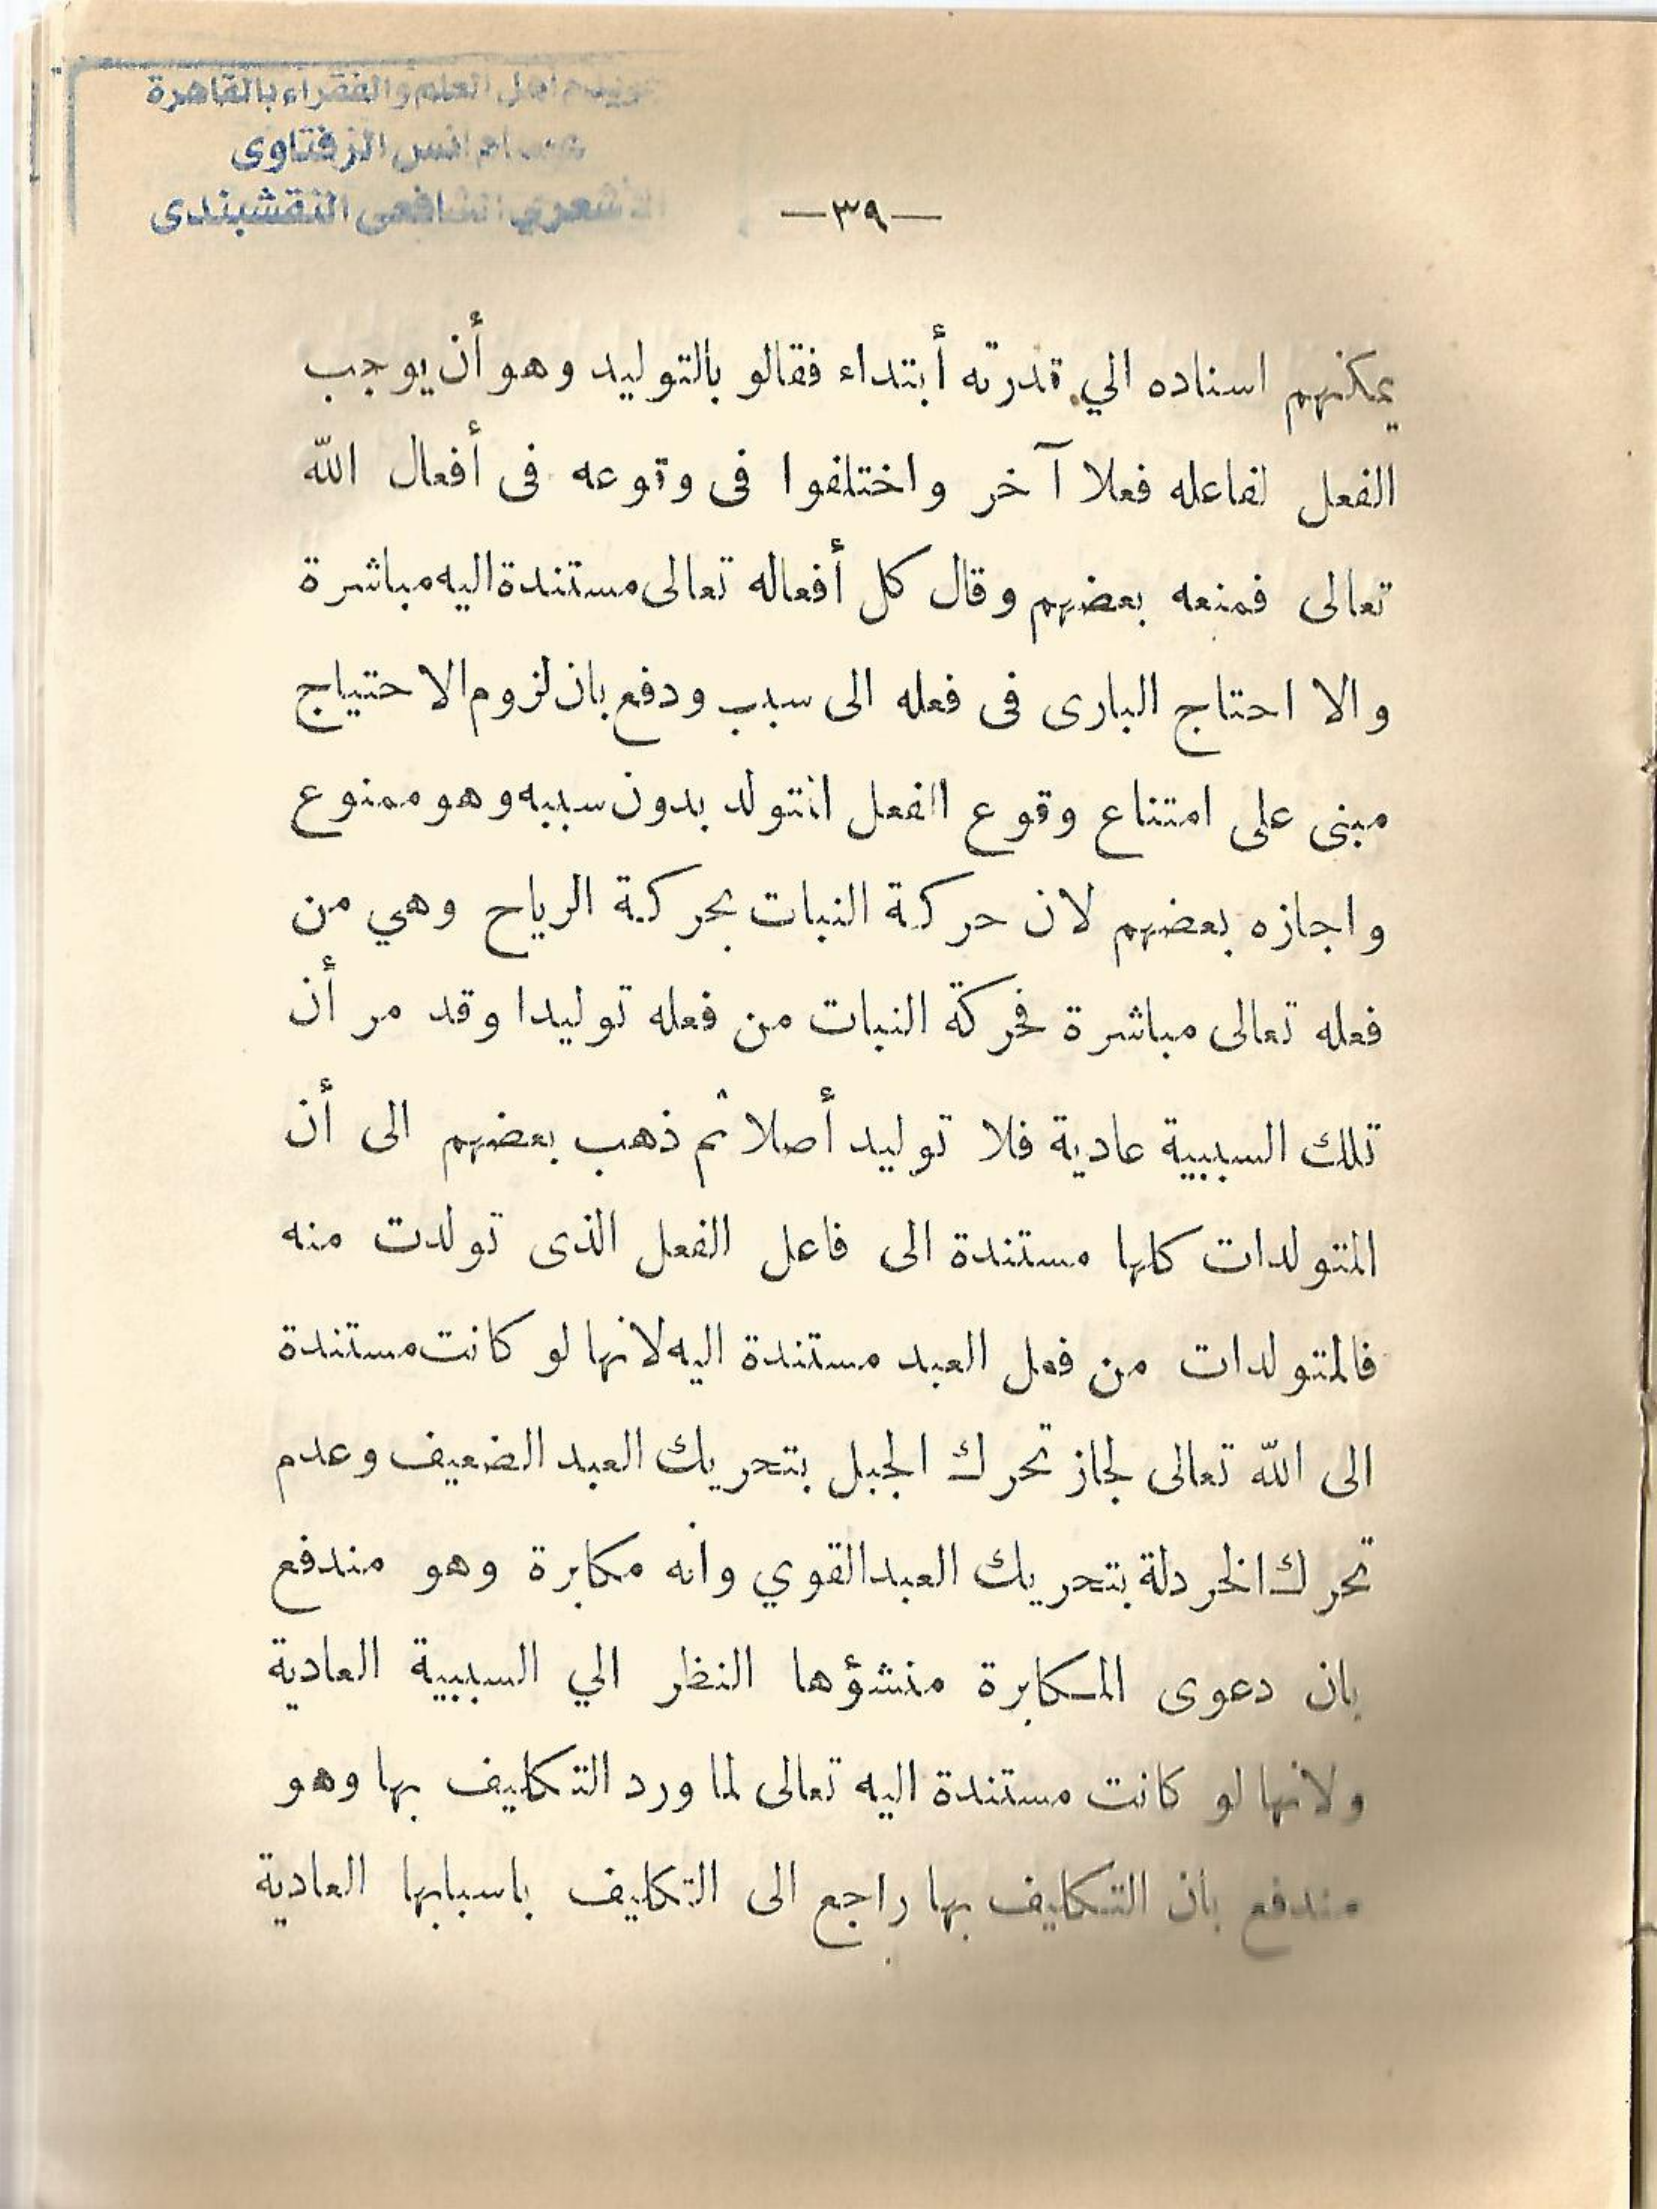 خويدم اهل العلم والفقراء بالقاهرة
انس الزفتاوى
الأشعري الشافعى النقشبندى
—٣٩—
يمكنهم اسناده الي قدرته أبتداء فقالو بالتوليد وهو أن يوجب
الفعل لفاعله فعلا آخر واختلفوا فى وقوعه فى أفعال الله
تعالى فمنعه بعضهم وقال كل أفعاله تعالى مستندة اليه مباشرة
والا احتاج البارى فى فعله الى سبب ودفع بان لزوم الاحتياج
مبنى على امتناع وقوع الفعل المتولد بدون سببه وهو ممنوع
واجازه بعضهم لان حركة النبات بحركة الرياح وهي من
فعله تعالى مباشرة فحركة النبات من فعله توليدا وقد مر أن
تلك السببية عادية فلا توليد أصلا ثم ذهب بعضهم الى أن
المتولدات كلها مستندة الى فاعل الفعل الذى تولدت منه
فالمتولدات من فعل العبد مستندة اليه لانها لو كانت مستندة
الى الله تعالى لجاز تحرك الجبل بتحريك العبد الضعيف وعدم
تحرك الخردلة بتحريك العبد القوي وانه مكابرة وهو مندفع
بان دعوى المكابرة منشؤها النظر الي السببية العادية
ولانها لو كانت مستندة اليه تعالى لما ورد التكليف بها وهو
مندفع بأن التكليف بها راجع الى التكليف باسبابها العادية